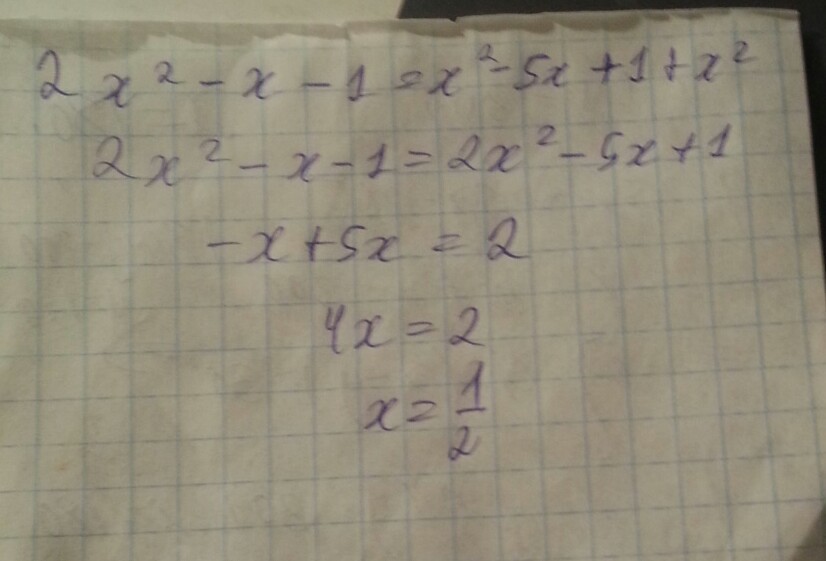 2x² - x - 1 = x² - 5x + 1 + x²
2x² - x - 1 = 2x² - 5x + 1
-x + 5x = 2
4x = 2
x = 1/2